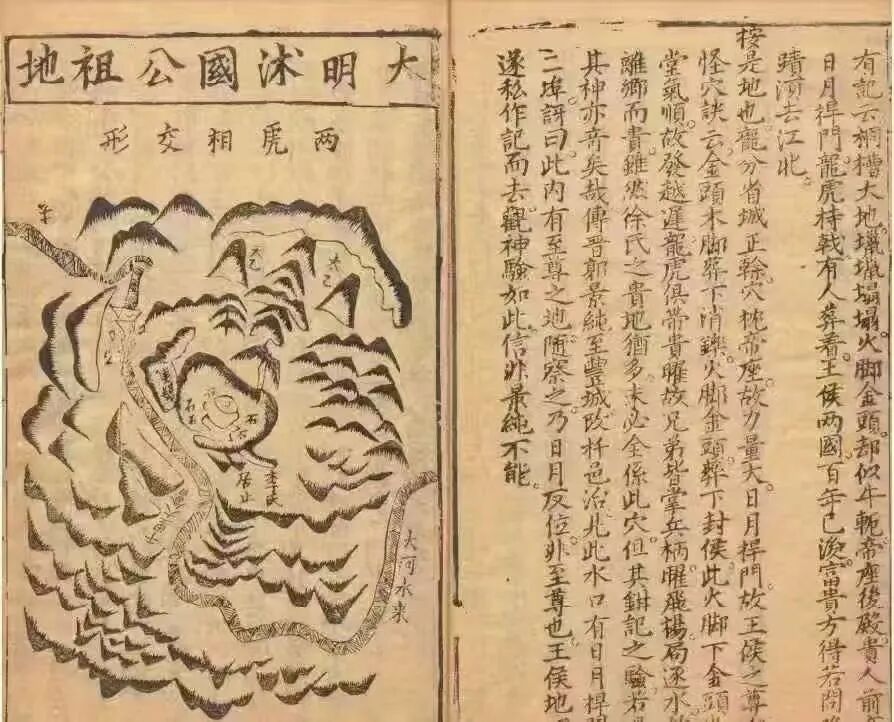 大明沭國公祖地
两虎相交形
太乙
太乙
石
居止
大河水來
有記云桐槽大地塌塌火脚金頭却似牛軛帝座後殿貴人前
日月捍門龍虎持戟有人葬着王侯两國百年已後富貴方得若問
蹟游去江北
按是地也龍分省城正榦穴枕帝座故力量大日月捍門故王侯之尊
怪穴訣云金頭木脚葬下消鑠火脚金頭葬下封侯此火脚下金頭
堂氣順故發越遲龍虎俱帶貴曜故兄弟皆掌兵柄曜飛揚局逐水
離鄉而貴雖然徐氏之貴地猶多未必全係此穴但其鉗記之驗若
其神亦竒矣哉傳晋郭景純至豐城改杆邑治見此水口有日月捍門
二埠訝曰此内有至尊之地随察之乃日月反位非至尊也王侯地
遂私作記而去觀神驗如此信非景純不能